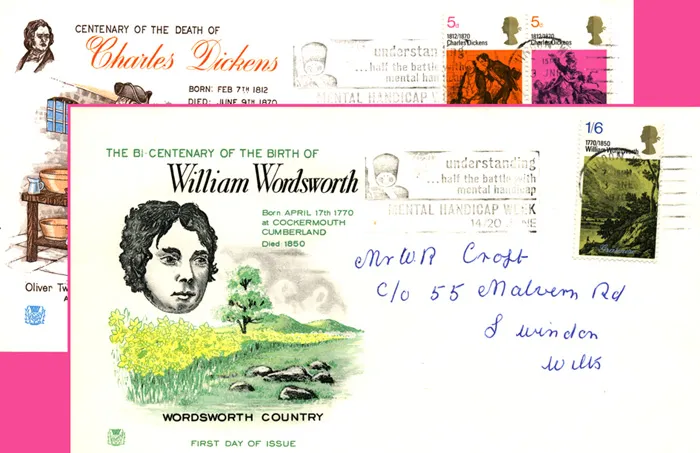 CENTENARY OF THE DEATH OF
Charles Dickens
BORN: FEB 7TH 1812
DIED: JUNE 9TH 1870
understanding
...half the battle with
mental han
MENTAL HANDICAP W
5d
1812/1870
Charles Dickens
5d
1812/1870
Charles Dickens
JNE
Oliver Tw
A
THE BI-CENTENARY OF THE BIRTH OF
William Wordsworth
Born APRIL 17th 1770
at COCKERMOUTH
CUMBERLAND
Died 1850
understanding
...half the battle with
mental handicap
MENTAL HANDICAP WEEK
14/20 JUNE
1/6
1770/1850
William Wordsworth
JNE
Grasmere
Mr W R Croft
c/o 55 Malvern Rd
Swindon
Wilts
WORDSWORTH COUNTRY
FIRST DAY OF ISSUE